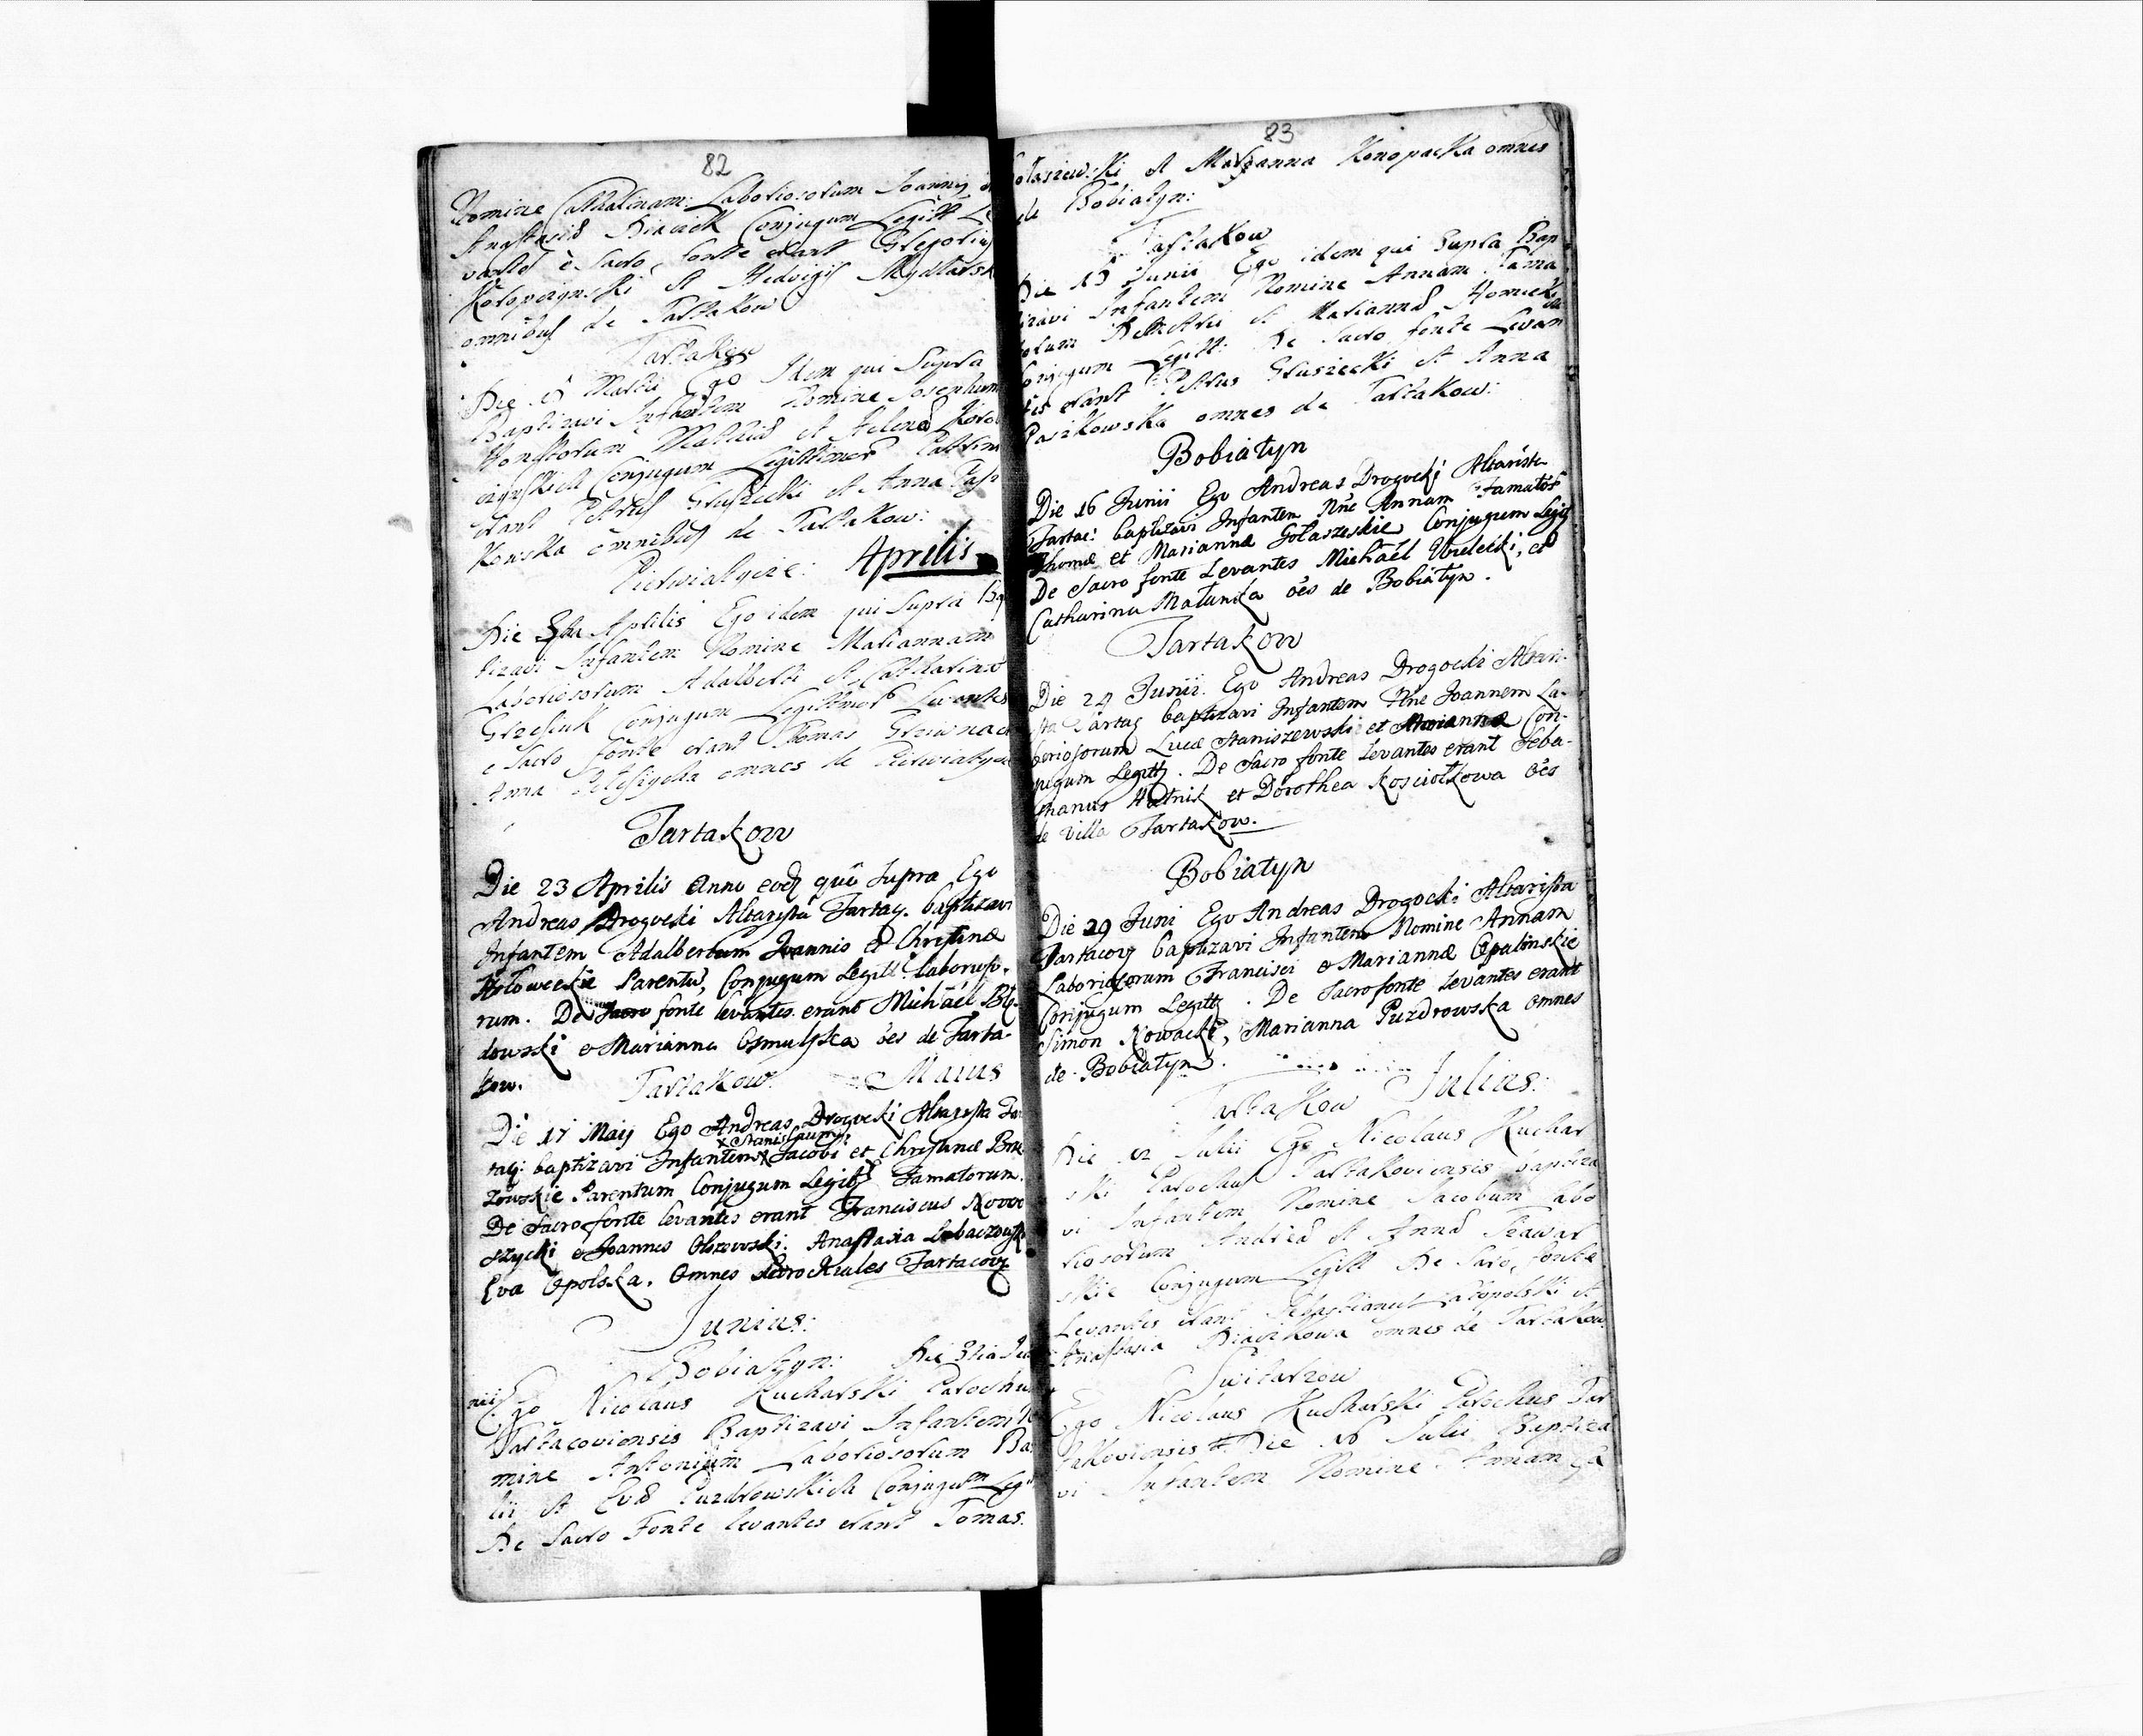 82
Nomine Catharinam: Laboriosorum Joannis et
Anastasiæ Conjugum Legitt Le
vantes è Sacro fonte erant Gregorius
et Hedvigis
omnibus de Tartakow
Tartakow
Die Martii Ego Idem qui Supra
Baptizavi Infantem Nomine Josephum
Honestorum Mathiæ et Helenæ
Conjugum Legittimor Patrini
erant Petrus Gruszecki et Anna Pasz
kowska omnibus de Tartakow:
Aprilis
Die Aprilis Ego idem qui Supra Bap
tizavi Infantem Nomine Mariannam
Laboriosorum Adalberti et Catharinæ
Conjugum Legittimor Levantes
e Sacro fonte erant Thomas
Anna omnes de
Tartakow
Die 23 Aprilis Anno eodz quô Supra Ego
Andreas Drogocki Altarysta Tartaq. baptizavi
Infantem Adalbertum Joannis et Christinæ
Parentũ, Conjugum Legitt. laborioso-
rum. De Sacro fonte levantes erant Michaël
dowski e Marianna Osmulska ões de Tarta-
kow.
Tartakow Maius
Die 17 Maij Ego Andreas Drogocki Altarysta Tar
x Stanislaum:
taq: baptizavi Infantem x Jacobi et Christinæ
Parentum Conjugum Legitt Famatorum.
De Sacro fonte levantes erant Franciscus Nowo
szycki e Joannes Olszewski: Anastasia
Eva Opolska. Omnes Tartacov
Junius:
Bobiatyn: Die 3tia Ju
nii Ego Nicolaus Kucharski Parochus
Tartacoviensis Baptizavi Infantem No
mine Antonium Laboriosorum Ba
lii et Evæ Puzdrowskich Conjugum Leg
De Sacro Fonte levantes erant Tomas.
83
Gołaszewski et Maryanna Konopacka omnes
de Bobiatyn:
Tartakow
Die 13 Junii Ego idem qui Supra Bap
tizavi Infantem Nomine Annam Fama
torum et Mariannæ
Conjugum Legitt: De Sacro fonte Levan
tes erant Petrus Gruszecki et Anna
Paszkowska omnes de Tartakow:
Bobiatyn
Die 16 Junii Ego Andreas Drogocki Altarista
Tartac: baptizavi Infantem Nñe Annam Famator
Thomæ et Mariannæ Gołaszeskie Conjugum Legit
De Sacro fonte Levantes Michaël Wielecki, et
Catharina ões de Bobiatyn.
Tartakow
Die 24 Junii. Ego Andreas Drogocki Altari-
sta Tartaq baptizavi Infantem Nñe Joannem La-
boriosorum Lucæ Staniszewski et Mariannæ Con-
jugum Legittz. De Sacro fonte levantes erant Seba-
stianus et Dorothea Kosciołkowa ões
de Villa Tartakow.
Bobiatyn
Die 29 Juni Ego Andreas Drogocki Altarista
Tartacov baptizavi Infantem Nomine Annam
Laboriosorum Francisci e Mariannæ Opalinskie
Conjugum Legittz. De Sacro fonte levantes erant
Simon Nowacki, Marianna Puzdrowska omnes
de Bobiatyn.
Tartakow Julius:
Die 12 Julii Ego Nicolaus Kuchar
ski Parochus Tartakoviensis baptiza
vi Infantem Nomine Jacobum Labo
riosorum Andreæ et Annæ
skie Conjugum Legitt De Sacro fonte
Levantes erant Sebastianus et
Anastasia omnes de Tartakow.
Switarzow
Ego Nicolaus Kucharski Parochus Tar
takoviensis Die 16 Julii Baptiza
vi Infantem Nomine Annam La